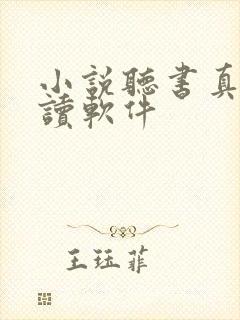 小説聽書真
讀軟件
王珏菲